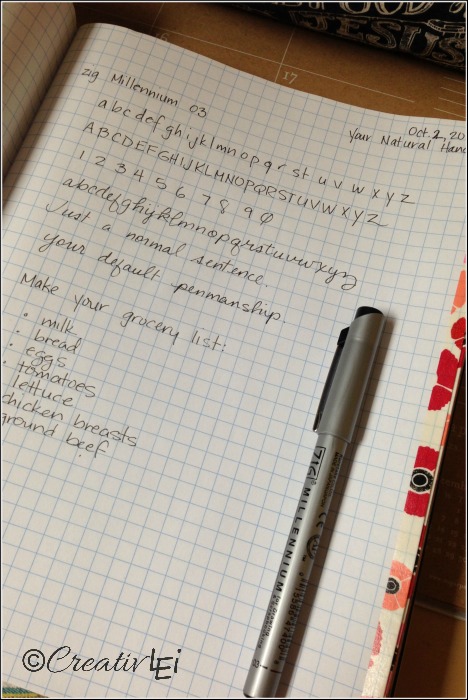 GOD
JESUS
17
zig Millennium 03
Oct. 2, 20
Your Natural Hand
abcdefghijklmnopqrstuvwxyz
ABCDEFGHIJKLMNOPQRSTUVWXYZ
1 2 3 4 5 6 7 8 9 0
abcdefghijklmnopqrstuvwxyz
Just a normal sentence.
your default penmanship.
Make your grocery list:
• milk
• bread
• eggs
• tomatoes
lettuce
chicken breasts
ground beef
ZIG MILLENNIUM
©CreativLEi